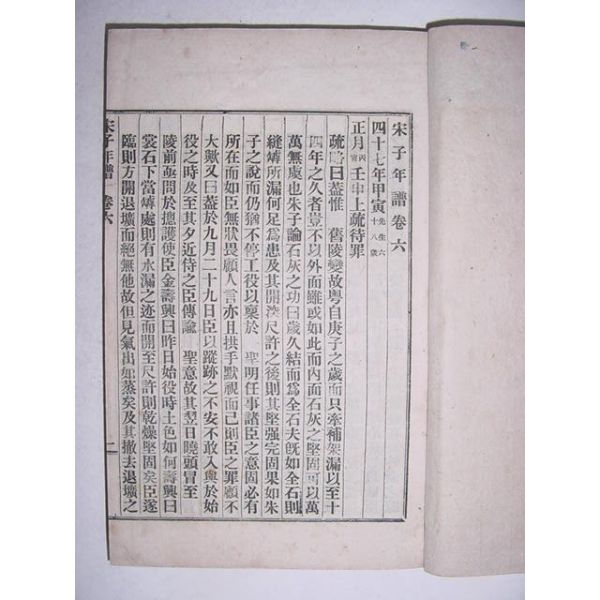 宋子年譜卷六
四十七年甲寅先生六十八歲
正月丙寅壬申上疏待罪
疏略曰蓋惟 舊陵變故粵自庚子之歲而只牽補架漏以至十
四年之久者豈不以外面雖或如此而內面石灰之堅固可以萬
萬無虞也朱子論石灰之功曰歲久結而爲全石夫旣如全石則
縫罅所漏何足爲患及其開深尺許之後則其堅强完固果如朱
子之說而仍猶不停工役以稟於 聖明任事諸臣之意固必有
所在而如臣無狀畏顧人言亦且拱手默視而已則臣之罪顧不
大歟又曰蓋於九月二十九日臣以蹤跡之不安不敢入與於始
役之時及至其夕近侍之臣傳諭 聖意故其翌日曉頭冒至
陵前亟問於摠護使臣金壽興曰昨日始役時土色如何壽興曰
裳石下當罅處則有水漏之迹而開至尺許則乾燥堅固矣臣遂
臨則方開退壙而絕無他故但見氣出如蒸矣及其撤去退壙之
宋子年譜 卷六
一